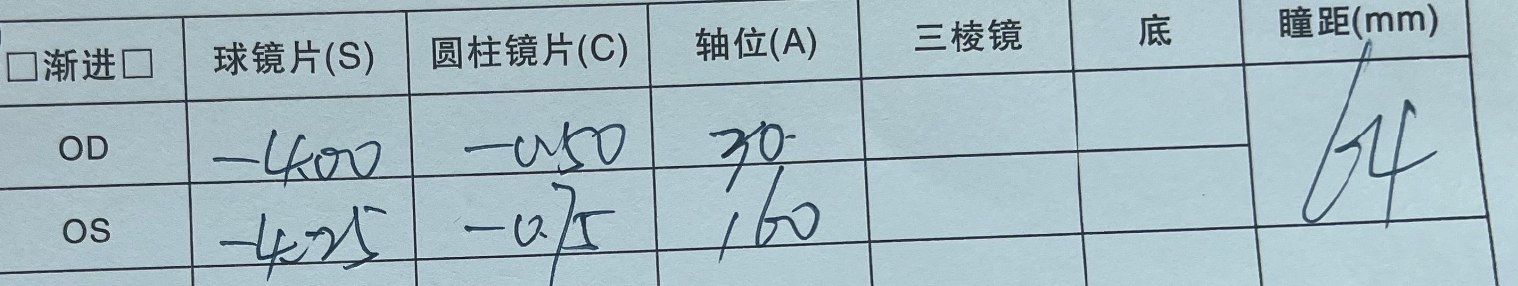 □渐进□ 球镜片(S) 圆柱镜片(C) 轴位(A) 三棱镜 底 瞳距(mm)
OD -4.00 -0.50 30 64
OS -4.25 -0.75 160